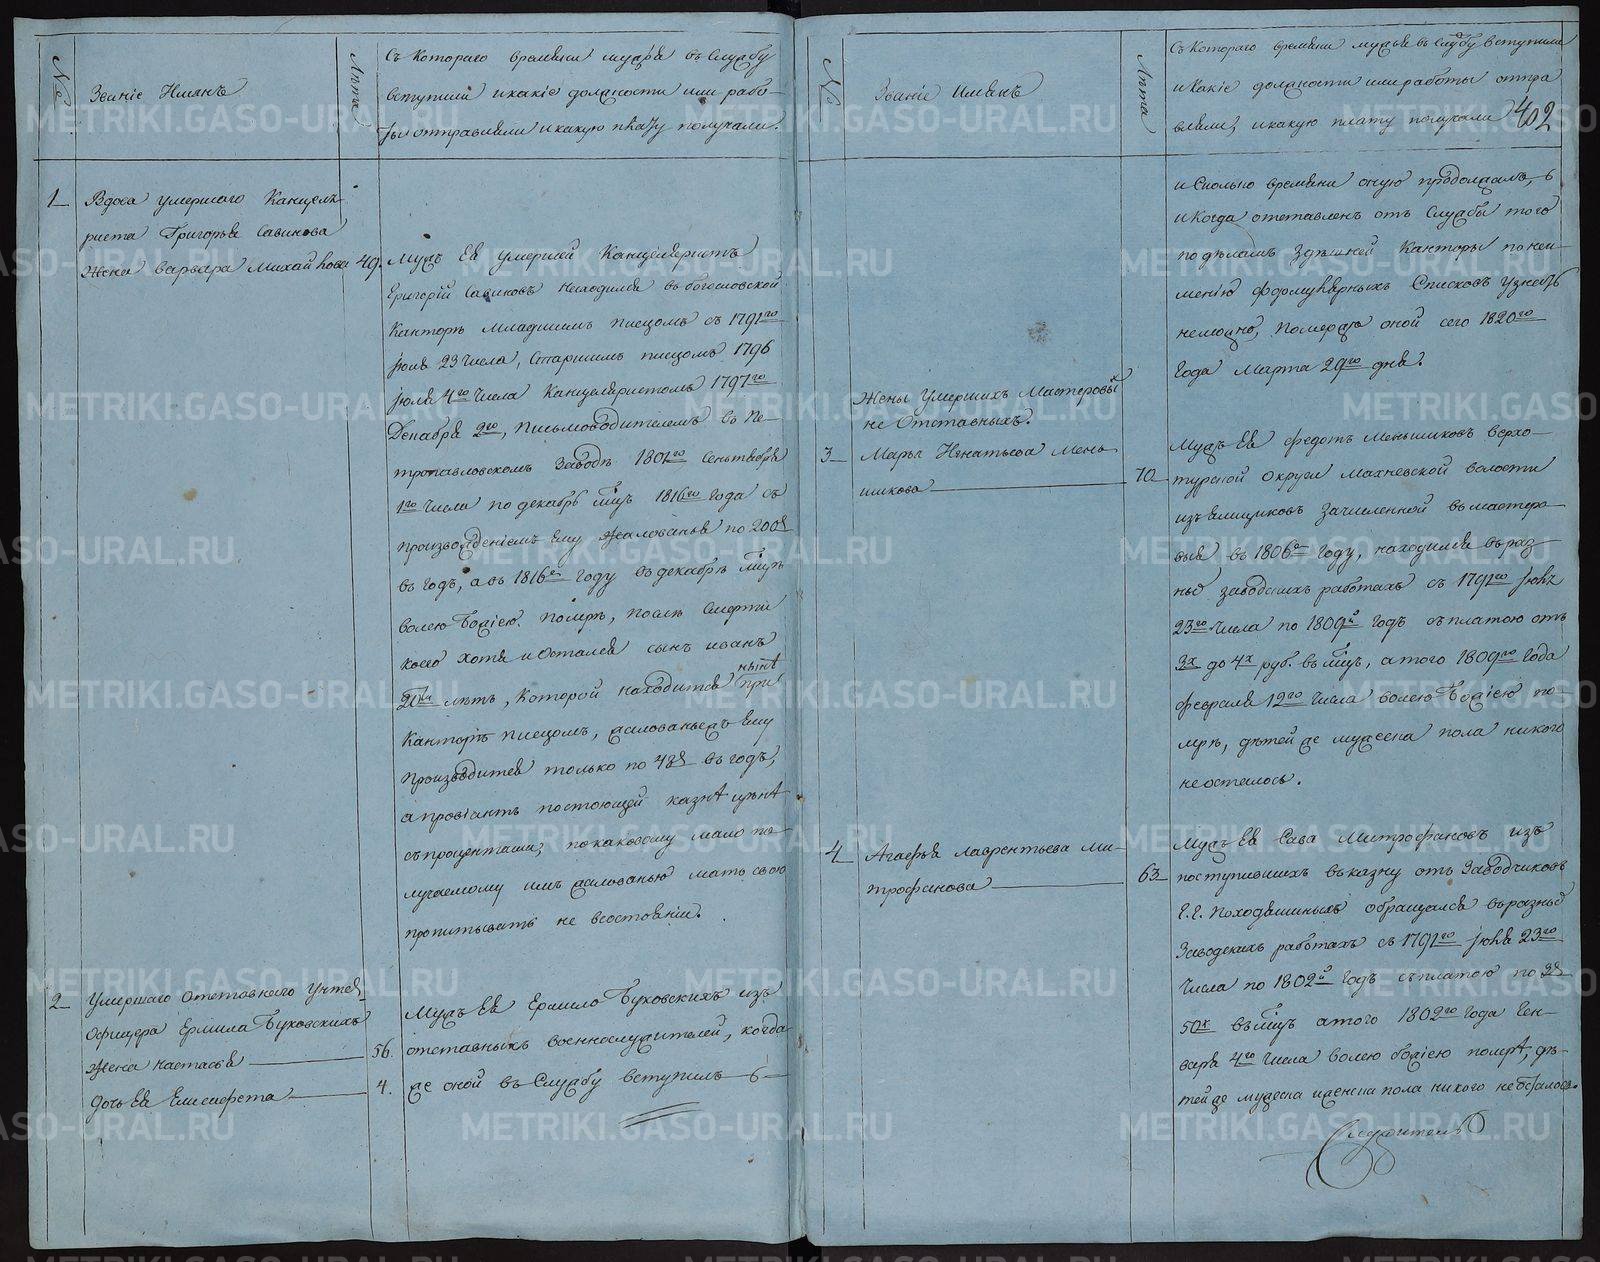 №
Званіе Имянъ
Лѣта
Съ Котораго времяни мужья въ службу
вступили и какіе должности или рабо-
ты отправляли и какую плату получали.
1
Вдова умершаго Канцеля-
риста Григорья Савинова
жена Варвара Михайлова 49.
Мужъ Ея умершей Канцеляристъ
Григорій Савиновъ находился въ богословской
Канторѣ Младшимъ писцомъ съ 1791го
июля 23 числа, Старшимъ писцомъ 1796
июля 4го числа Канцеляристомъ 1797го
Декабря 9го, письмоводителемъ въ Пе-
тропавловскомъ Заводѣ 1801го Сентября
1го числа по декабрь мцъ 1816го года съ
произвожденіемъ Ему Жалованья по 200р
въ годъ, а въ 1816е году въ декабрѣ мцѣ
волею Божіею помре, послѣ смерти
коего хотя и Остался сынъ иванъ
20ти лѣтъ, Которой находится нынѣ при
Канторѣ писцомъ, жалованьежъ Ему
производится только по 48р въ годъ,
а провіантъ постоющей казнѣ ценѣ
съ процентами, по каковому мало по-
лучаемому имъ жалованью мать свою
пропитывать не всостояніи.
2
Умершаго отставнаго Унтеръ
Офицера Ермила Буховскихъ
жена настасья 56.
дочь Ея Елисавета 4.
Мужъ Ея Ермило Буховскихъ изъ
отставныхъ военнослужителей, когда
же оной въ Службу вступилъ
№
Званіе Имянъ
Лѣта
Съ Котораго времяни мужья въ Службу вступили
и какіе должности или работы отпра
вляли, и какую плату получали
402
и Сколько времяни оную продолжалъ,
и Когда отставленъ отъ Службы того
по дѣламъ Здешней Канторы по неи-
менію формулярныхъ Списковъ узнать
неможно, Помержъ оной сего 1820го
Года Марта 29го дня.
Жены Умершихъ Мастеровы
не Отставныхъ.
3
Марья Игнатьева Мень-
шикова 70
Мужъ Ея Федотъ Меньшиковъ верхо-
турской Округи Махневской волости
изъ ямщиковъ зачисленной въ мастеро-
выя въ 1806е году, находился въ раз-
ныхъ заводскихъ работахъ съ 1791го июля
23го числа по 1809й годъ съ платою отъ
3х до 4х руб. въ мцъ, а того 1809го года
февраля 12го числа волею Божіею по-
мре, дѣтей же мужеска пола никого
не осталось.
4
Агафья Лаврентьева Ми-
трофанова 63
Мужъ Ея Сава Митрофановъ изъ
поступившихъ въ казну отъ Заводчиковъ
Г.Г. Походяшиныхъ обращался въ разныхъ
Заводскихъ работахъ съ 1791го июля 23го
числа по 1802й годъ съ платою по 3р
50к въ мцъ а того 1802го года Ген-
варя 4го числа волею божіею помре, дѣ-
тей же мужеска и женска пола никого не осталось.